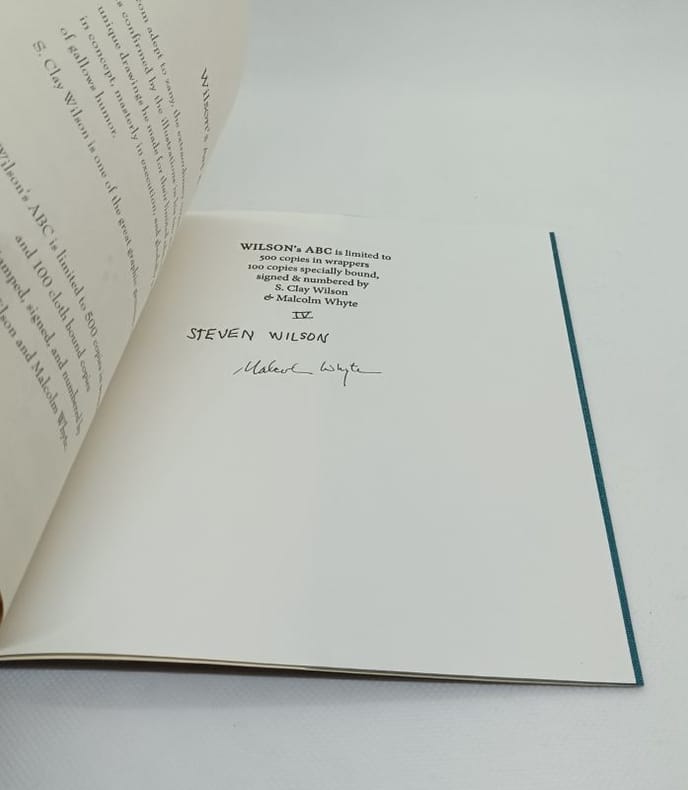 WILSON's A
om adept to zany, the
s confirmed by the illustrations in
unique drawings he made for
in concept, masterly in execution, and
of gallows humor.
S. Clay Wilson is one of the great graphic
Wilson's ABC is limited to 500 copies
and 100 cloth bound copies
amped, signed, and numbered by
lson and Malcolm Whyte.
WILSON's ABC is limited to
500 copies in wrappers
100 copies specially bound,
signed & numbered by
S. Clay Wilson
& Malcolm Whyte
IV
STEVEN WILSON
Malcolm Whyte